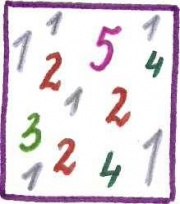 1 1 5 1
2 4
1 2
3 2
1 4 1